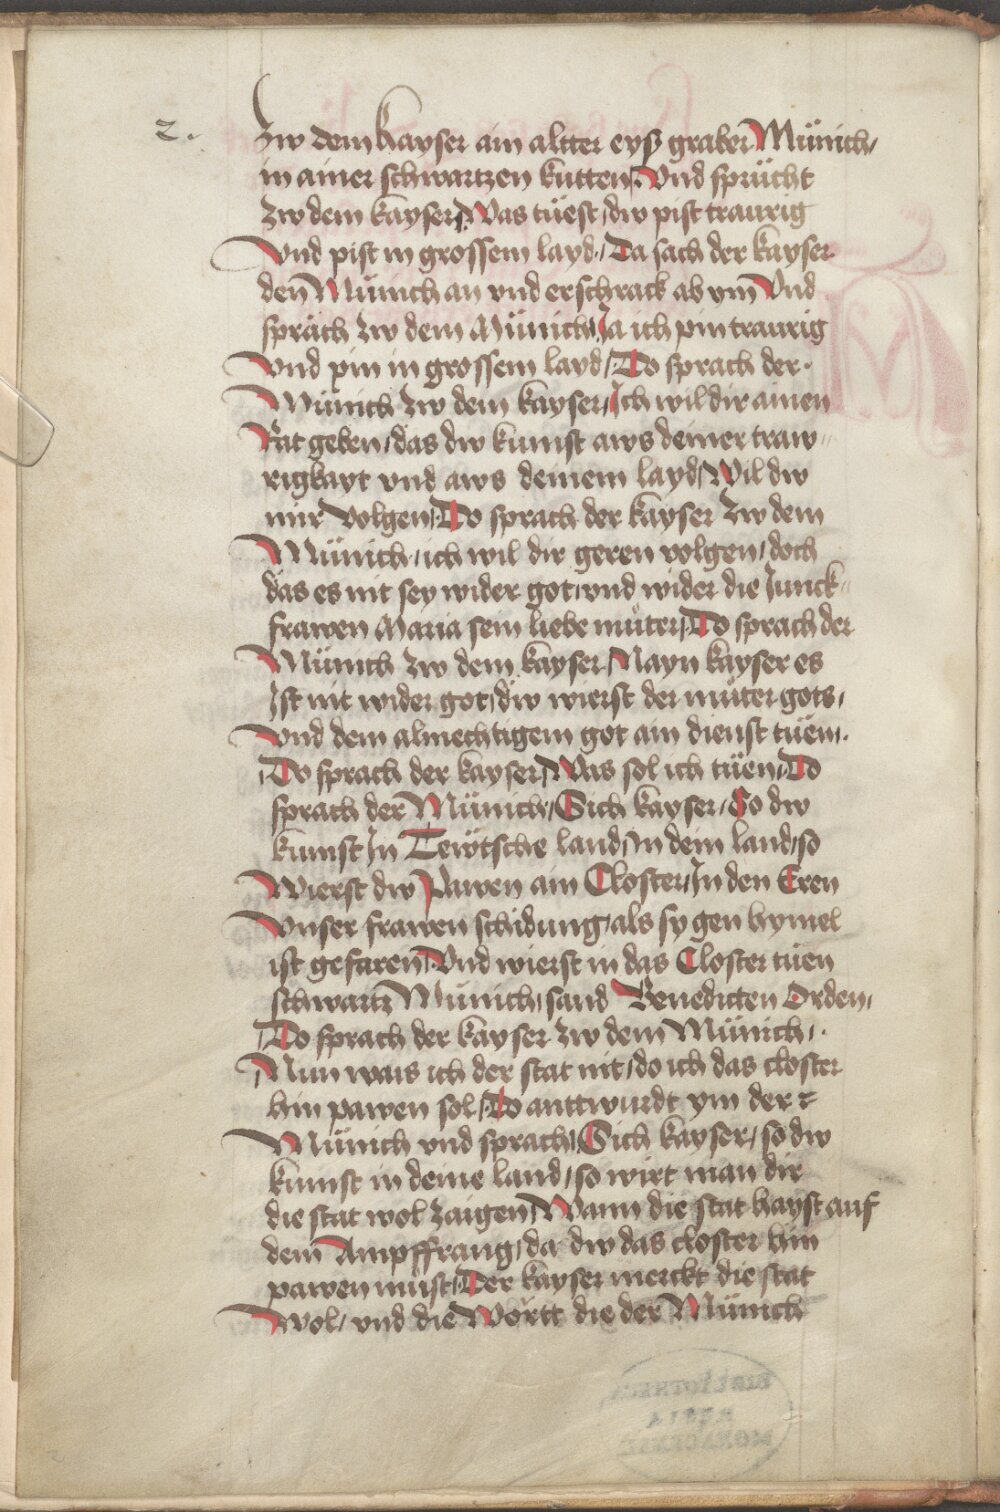 2.
Zw dem kayser ain altter eysz graber Münich /
in ainer schwartzen kutten / Vnd sprücht
zw dem kayser / Was tüest / dw pist traurig
Vnd pist in grossem layd / Da sach der kayser
den Münich an vnd erschrack ab ym Vnd
sprach zw dem Münich / Ja ich pin traurig
Vnd pin in grossem layd / Do sprach der
Münich zw dem kayser / Ich wil dir ainen
Rat geben / das dw kumst aws deiner traw-
rigkayt vnd aws deinem layd / Wil dw
mir Volgen / Do sprach der kayser zw dem
Münich / ich wil dir geren volgen / doch
das es nit sey wider got / vnd wider die Junck-
frawen Maria sein liebe müter / Do sprach der
Münich zw dem kayser / Nayn kayser es
Ist nit wider got / dw wierst der müter gots /
Vnd dem almechtigem got ain dienst tüen /
Do sprach der kayser / Was sol ich tüen / Do
sprach der Münich / Sich kayser / So dw
kumst In Tewtsche land / In dein land / so
Wierst dw Pawen ain Closter / In den Eren
Vnser frawen schidung / als sy gen hymel
ist gefaren / Vnd wierst in das Closter tüen
schwartz Münich / sand Benedicten Orden /
Do sprach der kayser zw dem Münich /
Nun wais ich der stat nit / do ich das closter
hin pawen sol / Do anttwurdt ym der
Münich vnd sprach / Sich kayser / so dw
kumst in deine land / so wirt man dir
die stat wol zaigen / Wann die stat hayst auf
dem Ampffrang / da dw das closter hin
pawen müst / Der kayser merckt die stat
Wol / vnd die Wortt die der Münich
BIBLIOTHECA
REGIA
MONACENSIS